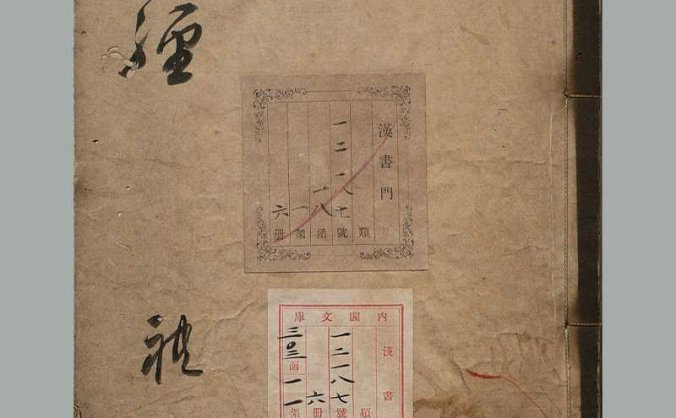 漢書門
類
一二一八七號
一八函
一架
六冊
内閣文庫
漢書
類
一二一八七號
六冊
三〇三函
一一架